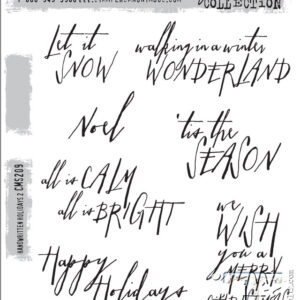 COLLECTION
Let it
SNOW
walking in a winter
WONDERLAND
Noel
'tis the
SEASON
all is CALM
all is BRIGHT
we
WISH
you a
MERRY
Happy
Holidays
HANDWRITTEN HOLIDAYS 2 CMS209